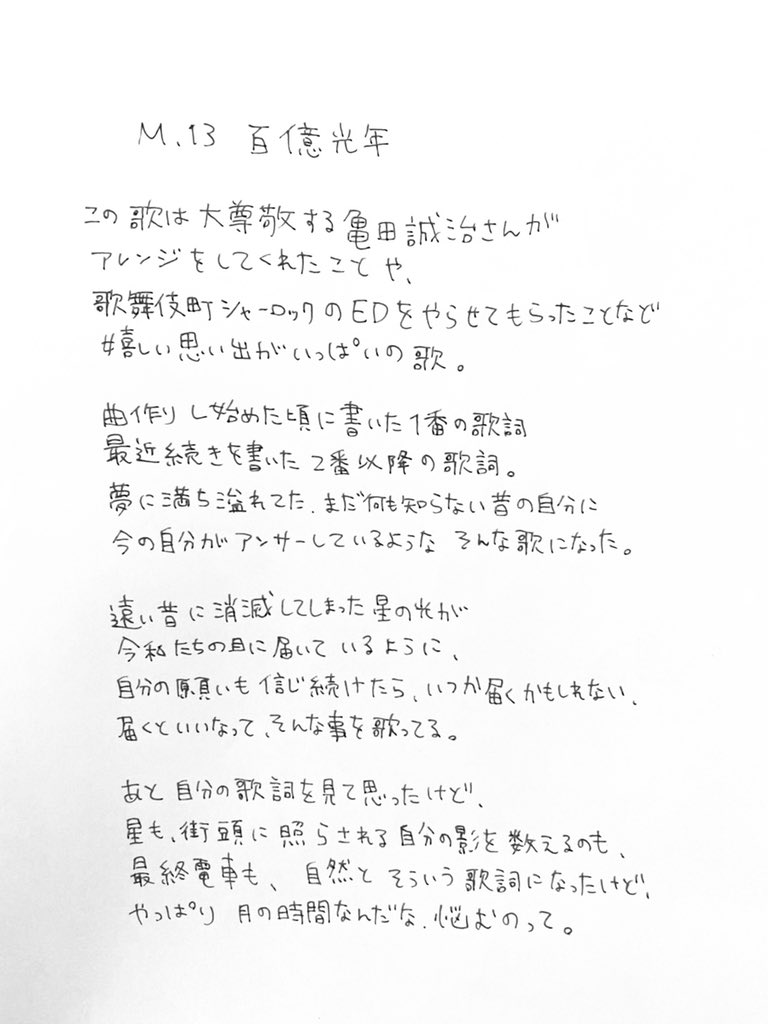 M.13 百億光年
この歌は大尊敬する亀田誠治さんが
アレンジをしてくれたことや、
歌舞伎町シャーロックのEDをやらせてもらったことなど
嬉しい思い出がいっぱいの歌。
曲作りし始めた頃に書いた1番の歌詞
最近続きを書いた2番以降の歌詞。
夢に満ち溢れてた、まだ何も知らない昔の自分に
今の自分がアンサーしているような そんな歌になった。
遠い昔に消滅してしまった星の光が
今私たちの目に届いているように、
自分の願いも信じ続けたら、いつか届くかもしれない、
届くといいなって、そんな事を歌ってる。
あと自分の歌詞を見て思ったけど、
星も、街頭に照らされる自分の影を数えるのも、
最終電車も、自然とそういう歌詞になったけど、
やっぱり月の時間なんだな、悩むのって。